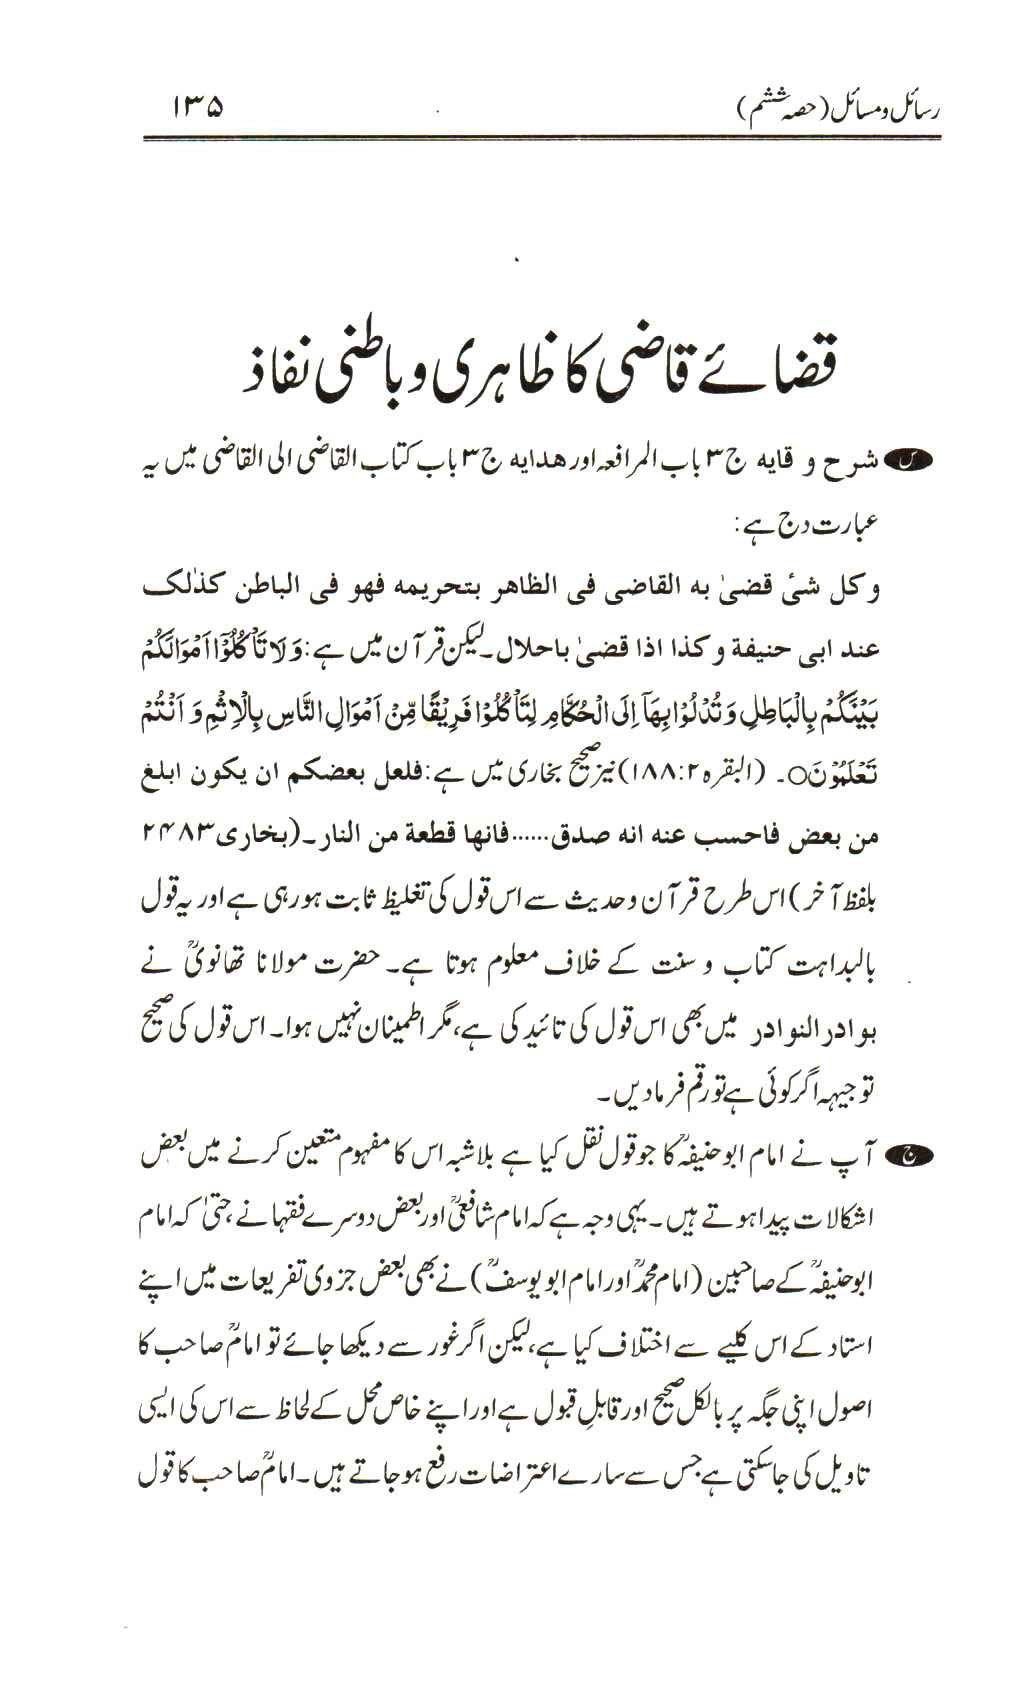 رسائل و مسائل (حصہ ششم)
۱۳۵
قضائے قاضی کا ظاہری و باطنی نفاذ
س شرح و قایہ ج ۳ باب المرافعہ اور ھدایہ ج ۳ باب کتاب القاضی الی القاضی میں یہ
عبارت دج ہے:
وکل شیٔ قضیٰ به القاضی فی الظاهر بتحریمه فهو فی الباطن کذٰلک
عند ابی حنیفة و کذا اذا قضیٰ باحلال۔ لیکن قرآن میں ہے: وَلَا تَاْكُلُوْٓا اَمْوَالَكُمْ
بَيْنَكُمْ بِالْبَاطِلِ وَتُدْلُوْا بِهَآ اِلَى الْحُكَّامِ لِتَاْكُلُوْا فَرِيْقًا مِّنْ اَمْوَالِ النَّاسِ بِالْاِثْمِ وَ اَنْتُمْ
تَعْلَمُوْنَ۝۔ (البقرہ ۲:۱۸۸) نیز صحیح بخاری میں ہے: فلعل بعضکم ان یکون ابلغ
من بعض فاحسب عنه انه صدق......فانها قطعة من النار۔ (بخاری ۲۴۸۳
بلفظ آخر) اس طرح قرآن و حدیث سے اس قول کی تغلیظ ثابت ہو رہی ہے اور یہ قول
بالبداہت کتاب و سنت کے خلاف معلوم ہوتا ہے۔ حضرت مولانا تھانویؒ نے
بوادر النوادر میں بھی اس قول کی تائید کی ہے، مگر اطمینان نہیں ہوا۔ اس قول کی صحیح
توجیہہ اگر کوئی ہے تو رقم فرمادیں۔
ج آپ نے امام ابوحنیفہؒ کا جو قول نقل کیا ہے بلاشبہ اس کا مفہوم متعین کرنے میں بعض
اشکالات پیدا ہوتے ہیں۔ یہی وجہ ہے کہ امام شافعیؒ اور بعض دوسرے فقہا نے، حتیٰ کہ امام
ابوحنیفہؒ کے صاحبین (امام محمدؒ اور امام ابو یوسفؒ) نے بھی بعض جزوی تفریعات میں اپنے
استاد کے اس کلیے سے اختلاف کیا ہے، لیکن اگر غور سے دیکھا جائے تو امامؒ صاحب کا
اصول اپنی جگہ پر بالکل صحیح اور قابلِ قبول ہے اور اپنے خاص محل کے لحاظ سے اس کی ایسی
تاویل کی جاسکتی ہے جس سے سارے اعتراضات رفع ہوجاتے ہیں۔ امامؒ صاحب کا قول